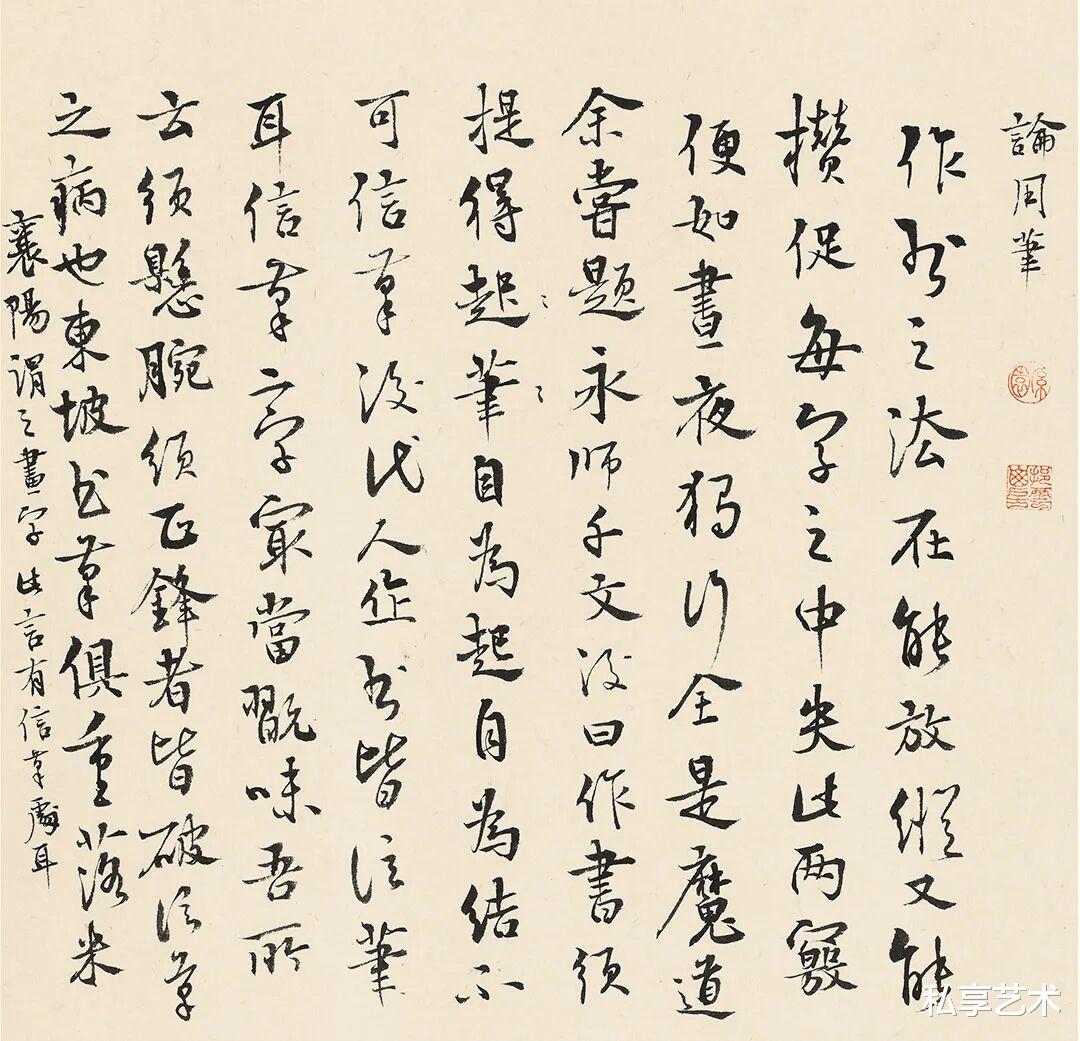 論用筆
作書之法在能放縱又能
攢促每字之中失此兩竅
便如晝夜獨行全是魔道
余嘗題永師千文後曰作書須
提得起筆自為起自為結不
可信筆後代人作書皆信筆
耳信筆二字最當翫味吾所
云須懸腕須正鋒者皆破信筆
之病也東坡書筆俱重落米
襄陽謂之畫字此言有信筆處耳
私享艺术